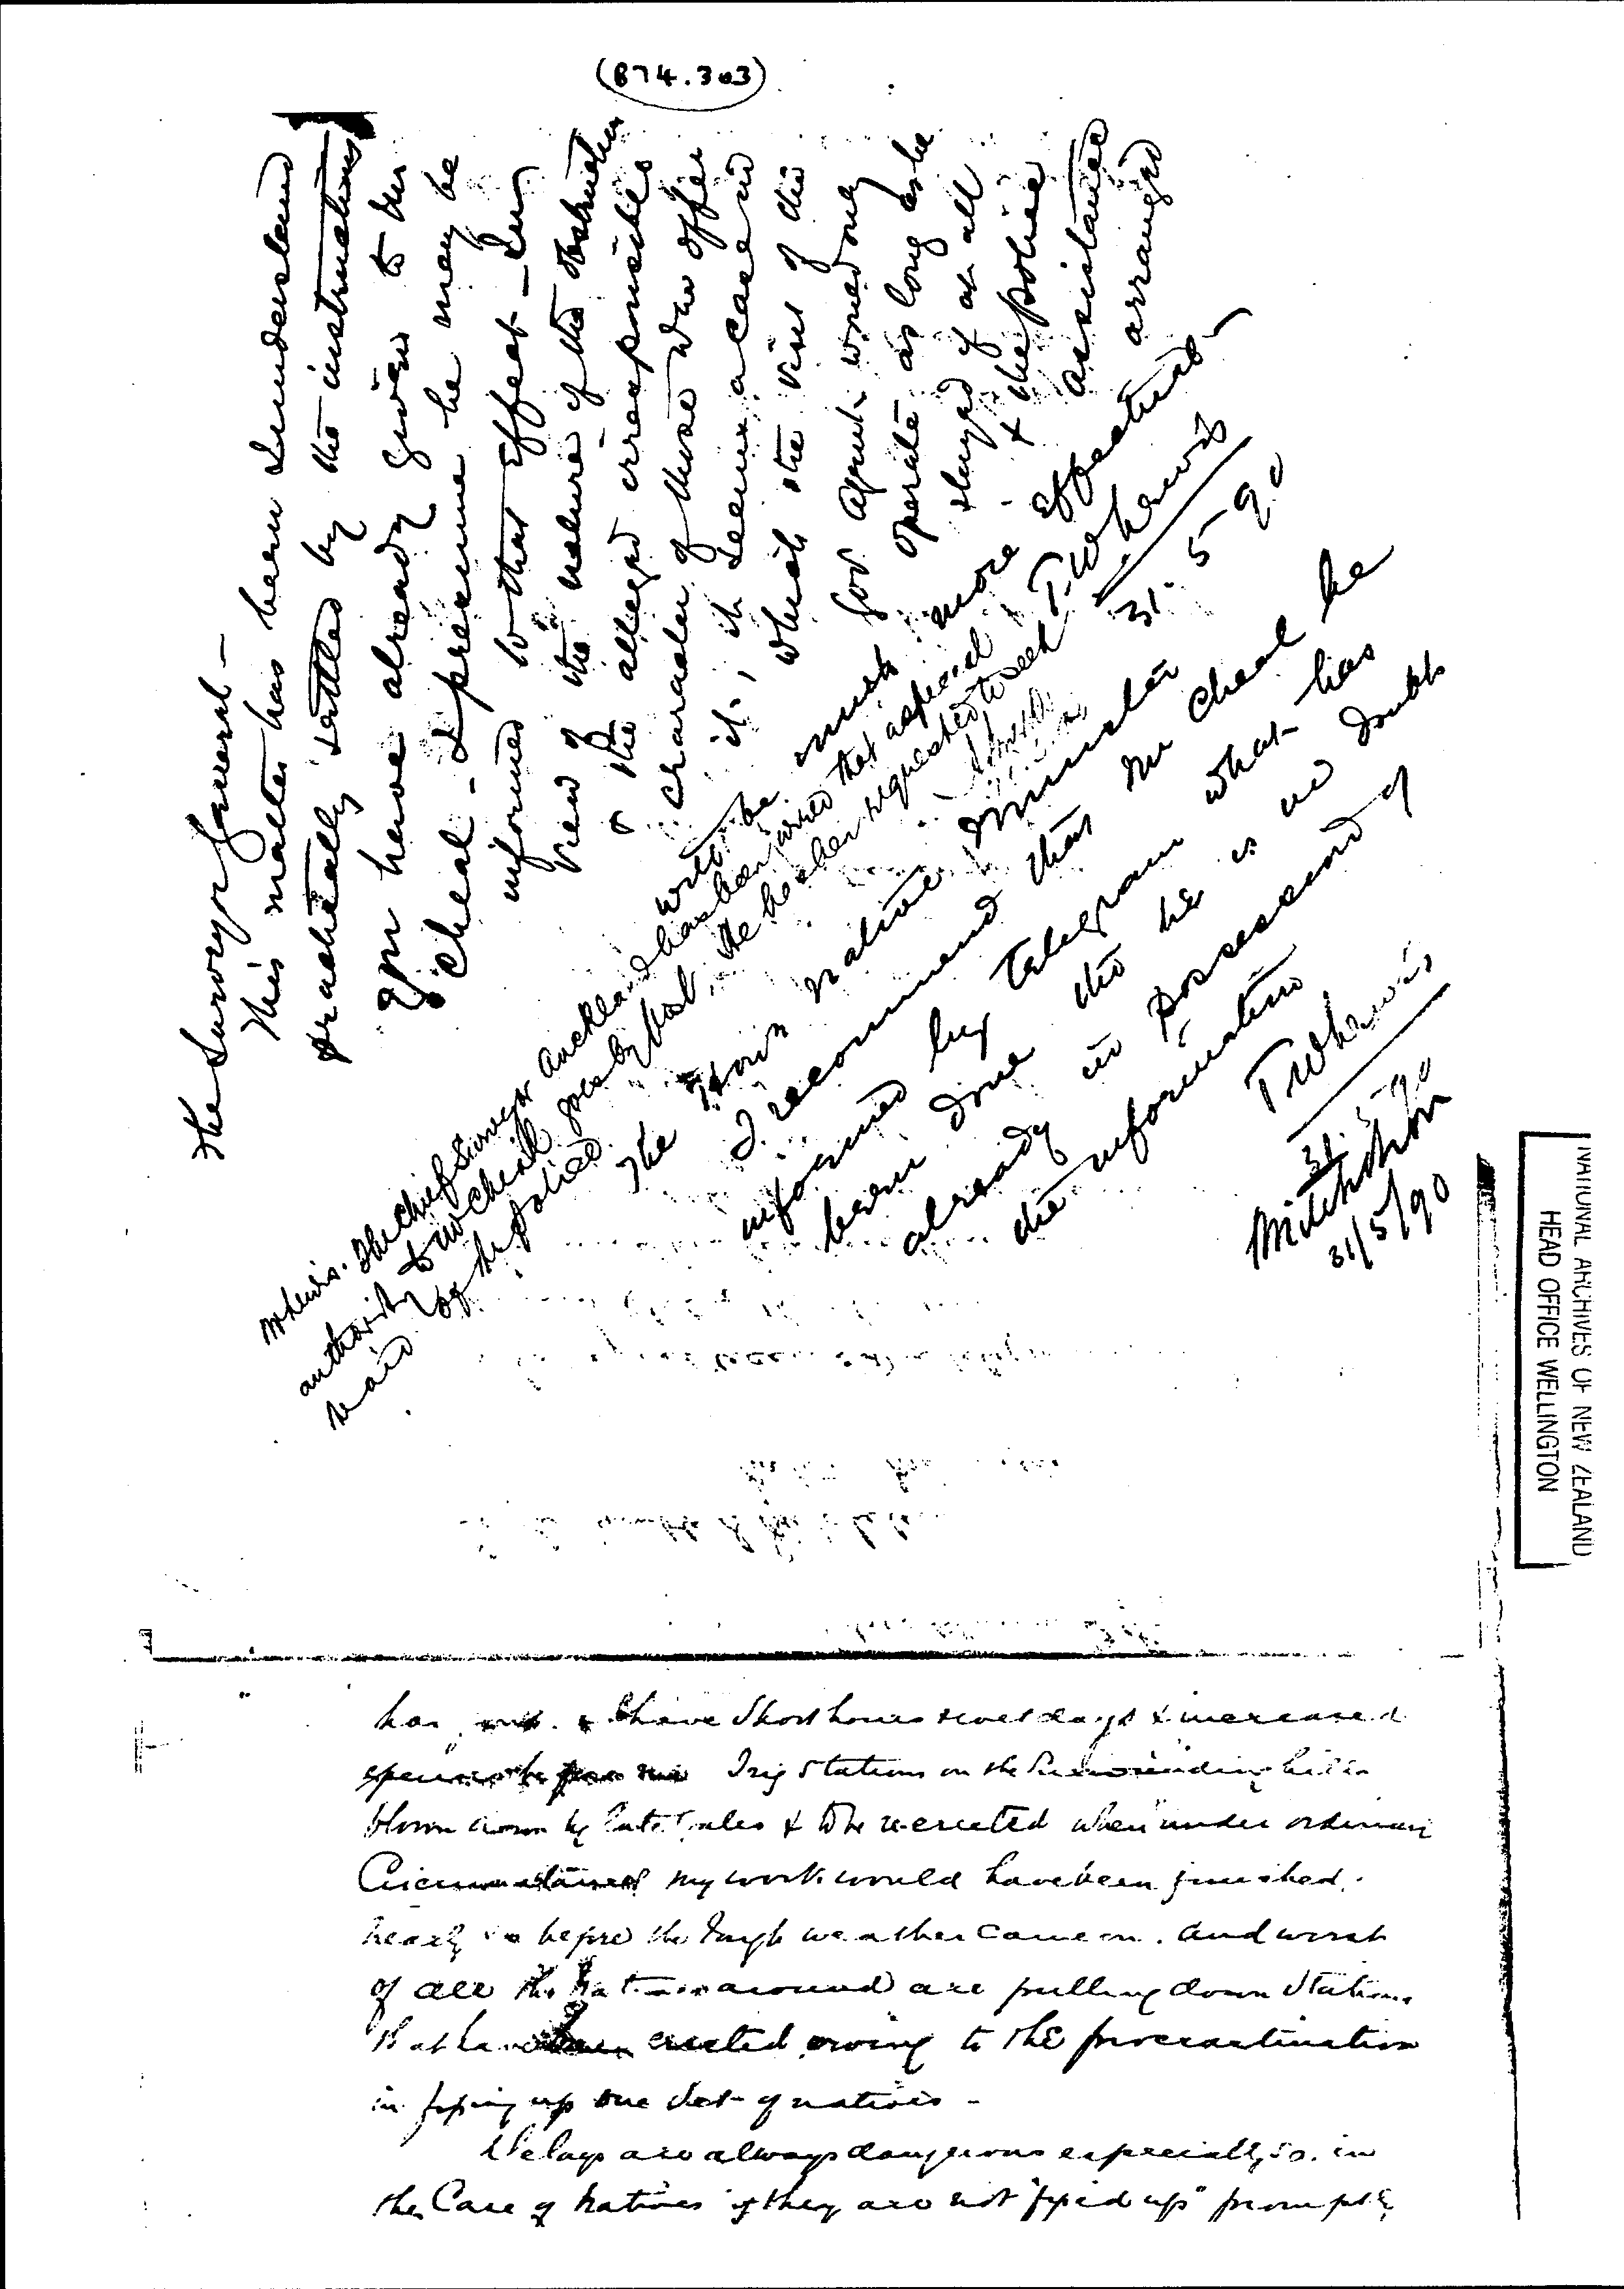 (874.303)
The Surveyor General -
This matter has been I understand
practically settled by the instructions
You have already given to Mr
Cheal - I presume he may be
informed to that effect - In
view of the nature of the obstruction
& the alleged irresponsible
character of those who offer
it, it seems a case in
which the visit of the
Govt Agent would only
operate as long as he
stayed if at all
& the police
assistance
arranged
will be much more effectual -
T.W. Lewis
31. 5 90
Mr Lewis. The Chief Surveyor Auckland has been wired that a special
authority to Mr Cheal goes by post. He has been requested to seek
the aid of the police.
The Hon Native Minister
I recommend that Mr Cheal be
informed by telegram what has
been done tho he is no doubt
already in possession of
the information
T W Lewis
31. 5 90
Mitchelson
31/5/90
NATIONAL ARCHIVES OF NEW ZEALAND
HEAD OFFICE WELLINGTON
has & have short hours & increased
Trig Stations on the Surrounding hills
blown down by late gales & to be re-erected when under ordinary
Circumstances my work would have been finished.
nearly so before the rough weather came on. and worst
of all the natives around are pulling down Stations
that have been erected owing to the procrastination
in fixing up one set of natives -
Delays are always dangerous especially so in
the Case of Natives if they are not "fixed up" promptly